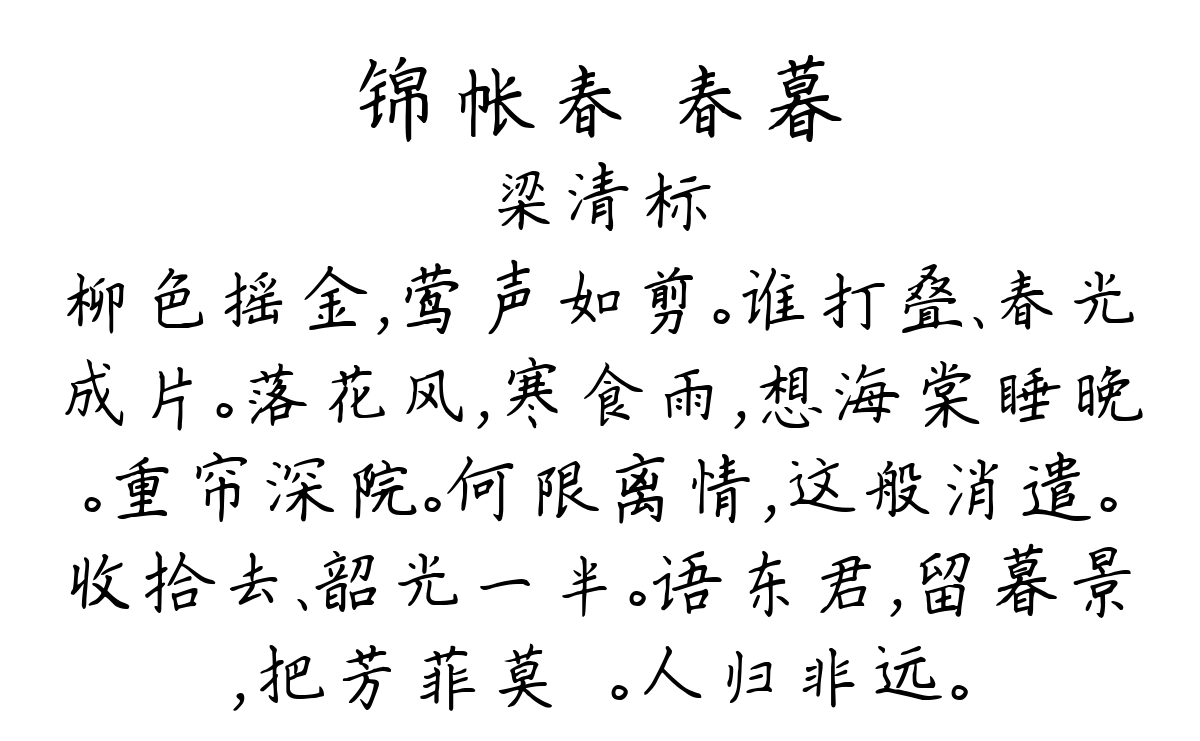 锦帐春 春暮
梁清标
柳色摇金,莺声如剪。谁打叠、春光
成片。落花风,寒食雨,想海棠睡晚
。重帘深院。何限离情,这般消遣。
收拾去、韶光一半。语东君,留暮景
,把芳菲莫 。人归非远。